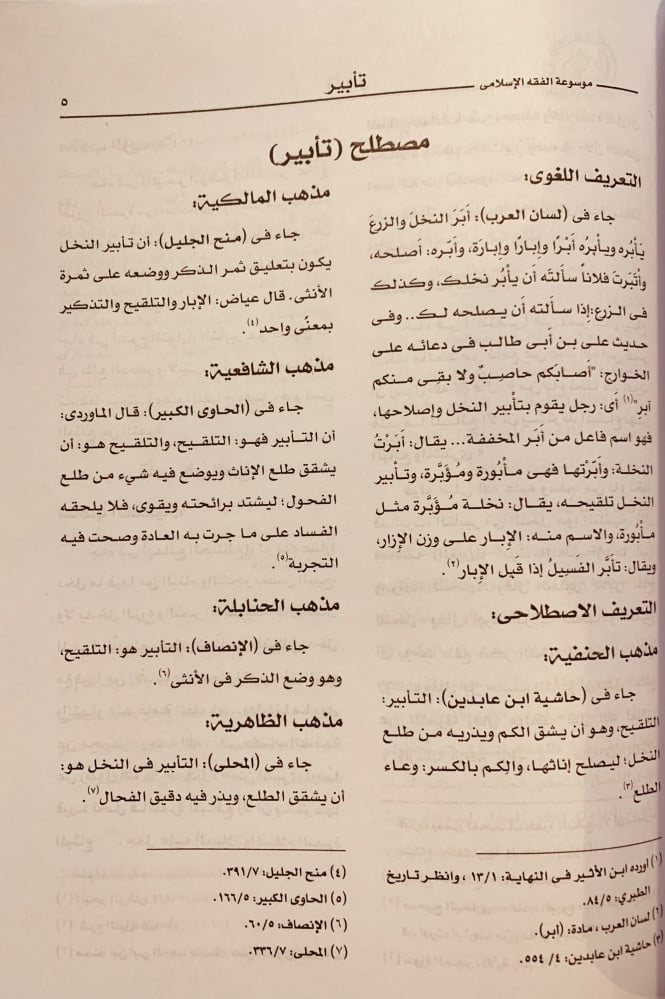 موسوعة الفقه الإسلامى
تأبير
٥
مصطلح (تأبير)
التعريف اللغوى:
جاء فى (لسان العرب): أَبَرَ النخلَ والزرعَ
يَأْبُره ويأبِرُه أَبْرًا وإِبارًا وإِبارَة، وأبّره: أصلحه،
وأْتَبَرتَ فلاناً سألتَه أن يأبُر نخلك، وكذلك
فى الزرع:إذا سألته أن يصلحه لك.. وفى
حديث على بن أبى طالب فى دعائه على
الخوارج: "أَصابكم حاصِبٌ ولا بقِى منكم
آبر"(١) أى: رجل يقوم بتأبير النخل وإصلاحها،
فهو اسم فاعل من أبَر المخففة... يقال: أَبَرْتُ
النخلة: وأَبَّرْتها فهى مأْبُورة ومُؤَبَّرة، وتأبير
النخل تلقيحه، يقال: نخلة مُؤَبَّرة مثل
مأْبُورة، والاسم منه: الإبار على وزن الإزار،
ويقال: تأبَّر الفَسِيلُ إذا قَبِل الإبار(٢).
التعريف الاصطلاحى:
مذهب الحنفية:
جاء فى (حاشية ابن عابدين): التأبير:
التلقيح، وهو أن يشق الكم ويذريه من طلع
النخل؛ ليصلح إناثها، والكِم بالكسر: وعاء
الطلع(٣).
(١) أورده ابن الأثير فى النهاية: ١٣/١ ، وانظر تاريخ
الطبري: ٨٤/٥.
(٢) لسان العرب ، مادة: (أبر).
(٣) حاشية ابن عابدين: ٤/ ٥٥٤.
مذهب المالكية:
جاء فى (منح الجليل): أن تأبير النخل
يكون بتعليق ثمر الذكر ووضعه على ثمرة
الأنثى. قال عياض: الإبار والتلقيح والتذكير
بمعنًى واحد(٤).
مذهب الشافعية:
جاء فى (الحاوى الكبير): قال الماوردى:
أن التأبير فهو: التلقيح، والتلقيح هو: أن
يشقق طلع الإناث ويوضع فيه شيء من طلع
الفحول؛ ليشتد برائحته ويقوى، فلا يلحقه
الفساد على ما جرت به العادة وصحت فيه
التجربة(٥).
مذهب الحنابلة:
جاء فى (الإنصاف): التأبير هو: التلقيح،
وهو وضع الذكر فى الأنثى(٦).
مذهب الظاهرية:
جاء فى (المحلى): التأبير فى النخل هو:
أن يشقق الطلع، ويذر فيه دقيق الفحال(٧).
(٤) منح الجليل: ٣٩١/٧.
(٥) الحاوى الكبير: ١٦٦/٥.
(٦) الإنصاف: ٦٠/٥.
(٧) المحلى: ٣٣٦/٧.